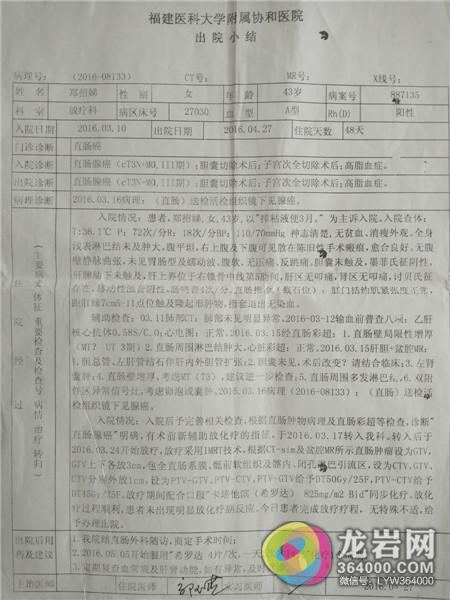 福建医科大学附属协和医院
出院小结
病理号： (2016-08133) CT号： MR号： X线号：
姓名 郑招娣 性别 女 年龄 43岁 病案号 887135
科室 放疗科 病区床号 27030 血型 A型 Rh(D) 阳性
入院日期 2016.03.10 出院日期 2016.04.27 住院天数 48天
门诊诊断 直肠癌
入院诊断 直肠腺癌（cT3N+M0,III期）；胆囊切除术后；子宫次全切除术后；高脂血症。
出院诊断 直肠腺癌（cT3N+M0,III期）；胆囊切除术后；子宫次全切除术后；高脂血症。
病理诊断 2016.03.16病理：（直肠）送检活检组织镜下见腺癌。
住院经过
（主要病史 体征 重要检查及检查号 病情 治疗 转归）
入院情况：患者,郑招娣,女,43岁,以"排粘液便3月。"为主诉入院。入院查体：
T:36.1℃ P：72次/分R：18次/分BP：110/70mmHg 神志清楚,无贫血、消瘦外观。全身
浅表淋巴结未及肿大。腹平坦,右上腹及下腹可见散在陈旧性手术瘢痕,愈合良好。无腹
壁静脉曲张,未见胃肠型及蠕动波,腹软,无压痛、反跳痛,胆囊未触及,墨菲氏征阴性,
肝脾肋下未触及,肝上界位于右锁骨中线第5肋间,肝区无叩痛,肾区无叩痛,讨贝氏征
存在。移动性浊音阴性,肠鸣音4次/分,直肠指诊（截石位），肛门括约肌紧张度正常,
距肛缘7cm5-11点位触及隆起形肿物,指套退出无染血。
辅助检查：03.11肺部CT：肺部未见明显异常。2016-03-12输血前普查八项：乙肝
核心抗体0.58S/C.O;心电图：正常。2016.03.15经直肠彩超：1.直肠壁局限性增厚
(MT? UT 3期) 2.直肠周围淋巴结肿大,心脏彩超：正常。2016.03.15肝胆+盆腔MR：
1.胆总管、左肝管结石伴肝内外胆管扩张；2.胆囊未见,术后改变？请结合临床；3.左肾
囊肿；4.直肠壁增厚,考虑MT（T3），建议进一步检查；5.直肠周围多发淋巴结。6.双附
件区异常信号灶,考虑卵泡或囊肿。2016.03.16病理(2016-08133)：（直肠）送检活
检组织镜下见腺癌。
入院情况：入院后予完善相关检查,根据直肠肿物病理及直肠彩超等检查,诊断"
直肠腺癌"明确,有术前新辅助放化疗的指征,于2016.03.17转入我科。转入后于
2016.03.24开始放疗,放疗采用IMRT技术,根据CT-sim及盆腔MR所示直肠肿瘤设为GTV,
GTV上下各放3cm,包全直肠系膜、骶前软组织及髂内、闭孔淋巴引流区,设为CTV,GTV、
CTV分别外放1cm,设为PTV-GTV、PTV-CTV,PTV-GTV给予DT50Gy/25F,PTV-CTV给予
DT45Gy/25F,放疗期间配合口服"卡培他滨（希罗达） 825mg/m2 Bid"同步化疗。放化
疗过程顺利,患者未出现明显放化疗副反应。今日患者完成放疗疗程,无特殊不适,给
予办理出院。
出院后用药及建议
1.我院结直肠外科随访,商定手术时间；
2.2016.05.05开始服用"希罗达 4片/次,一天
3.定期复查血常规及肝肾功能,如有异常,及时
主治医师 住院医师 实习医师 2016.04.27
龙岩网
364000.COM
微信公众号：LYW364000